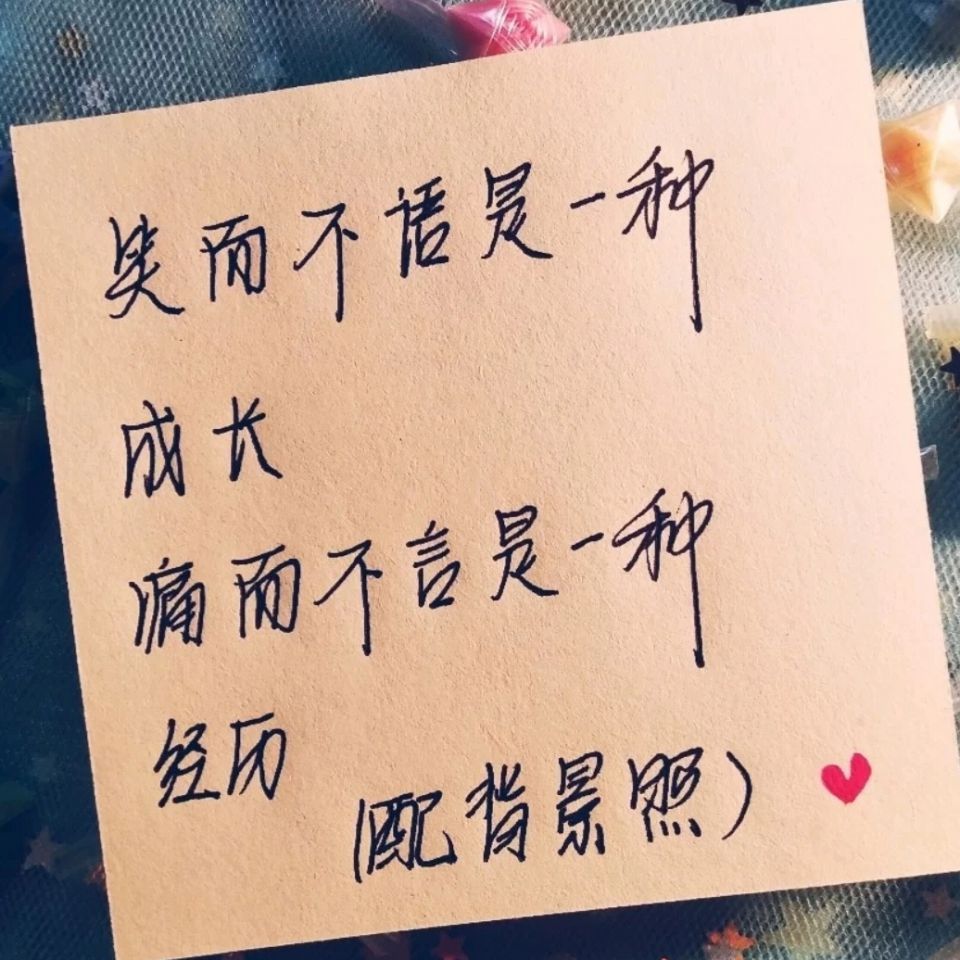 笑而不语是一种
成长
痛而不言是一种
经历
(配背景照)